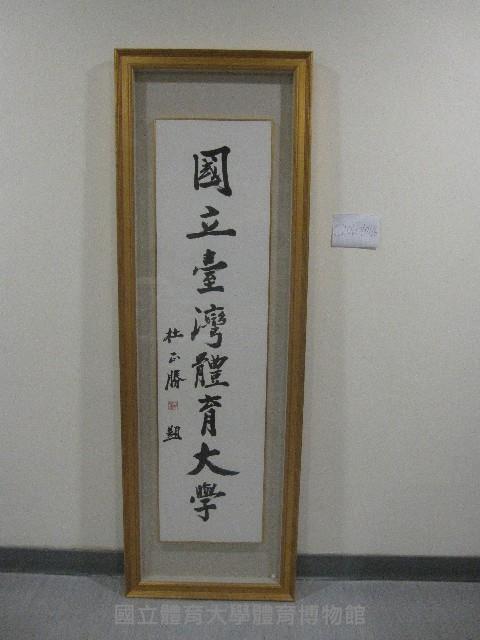 國立臺灣體育大學
杜正勝
題
國立體育大學體育博物館